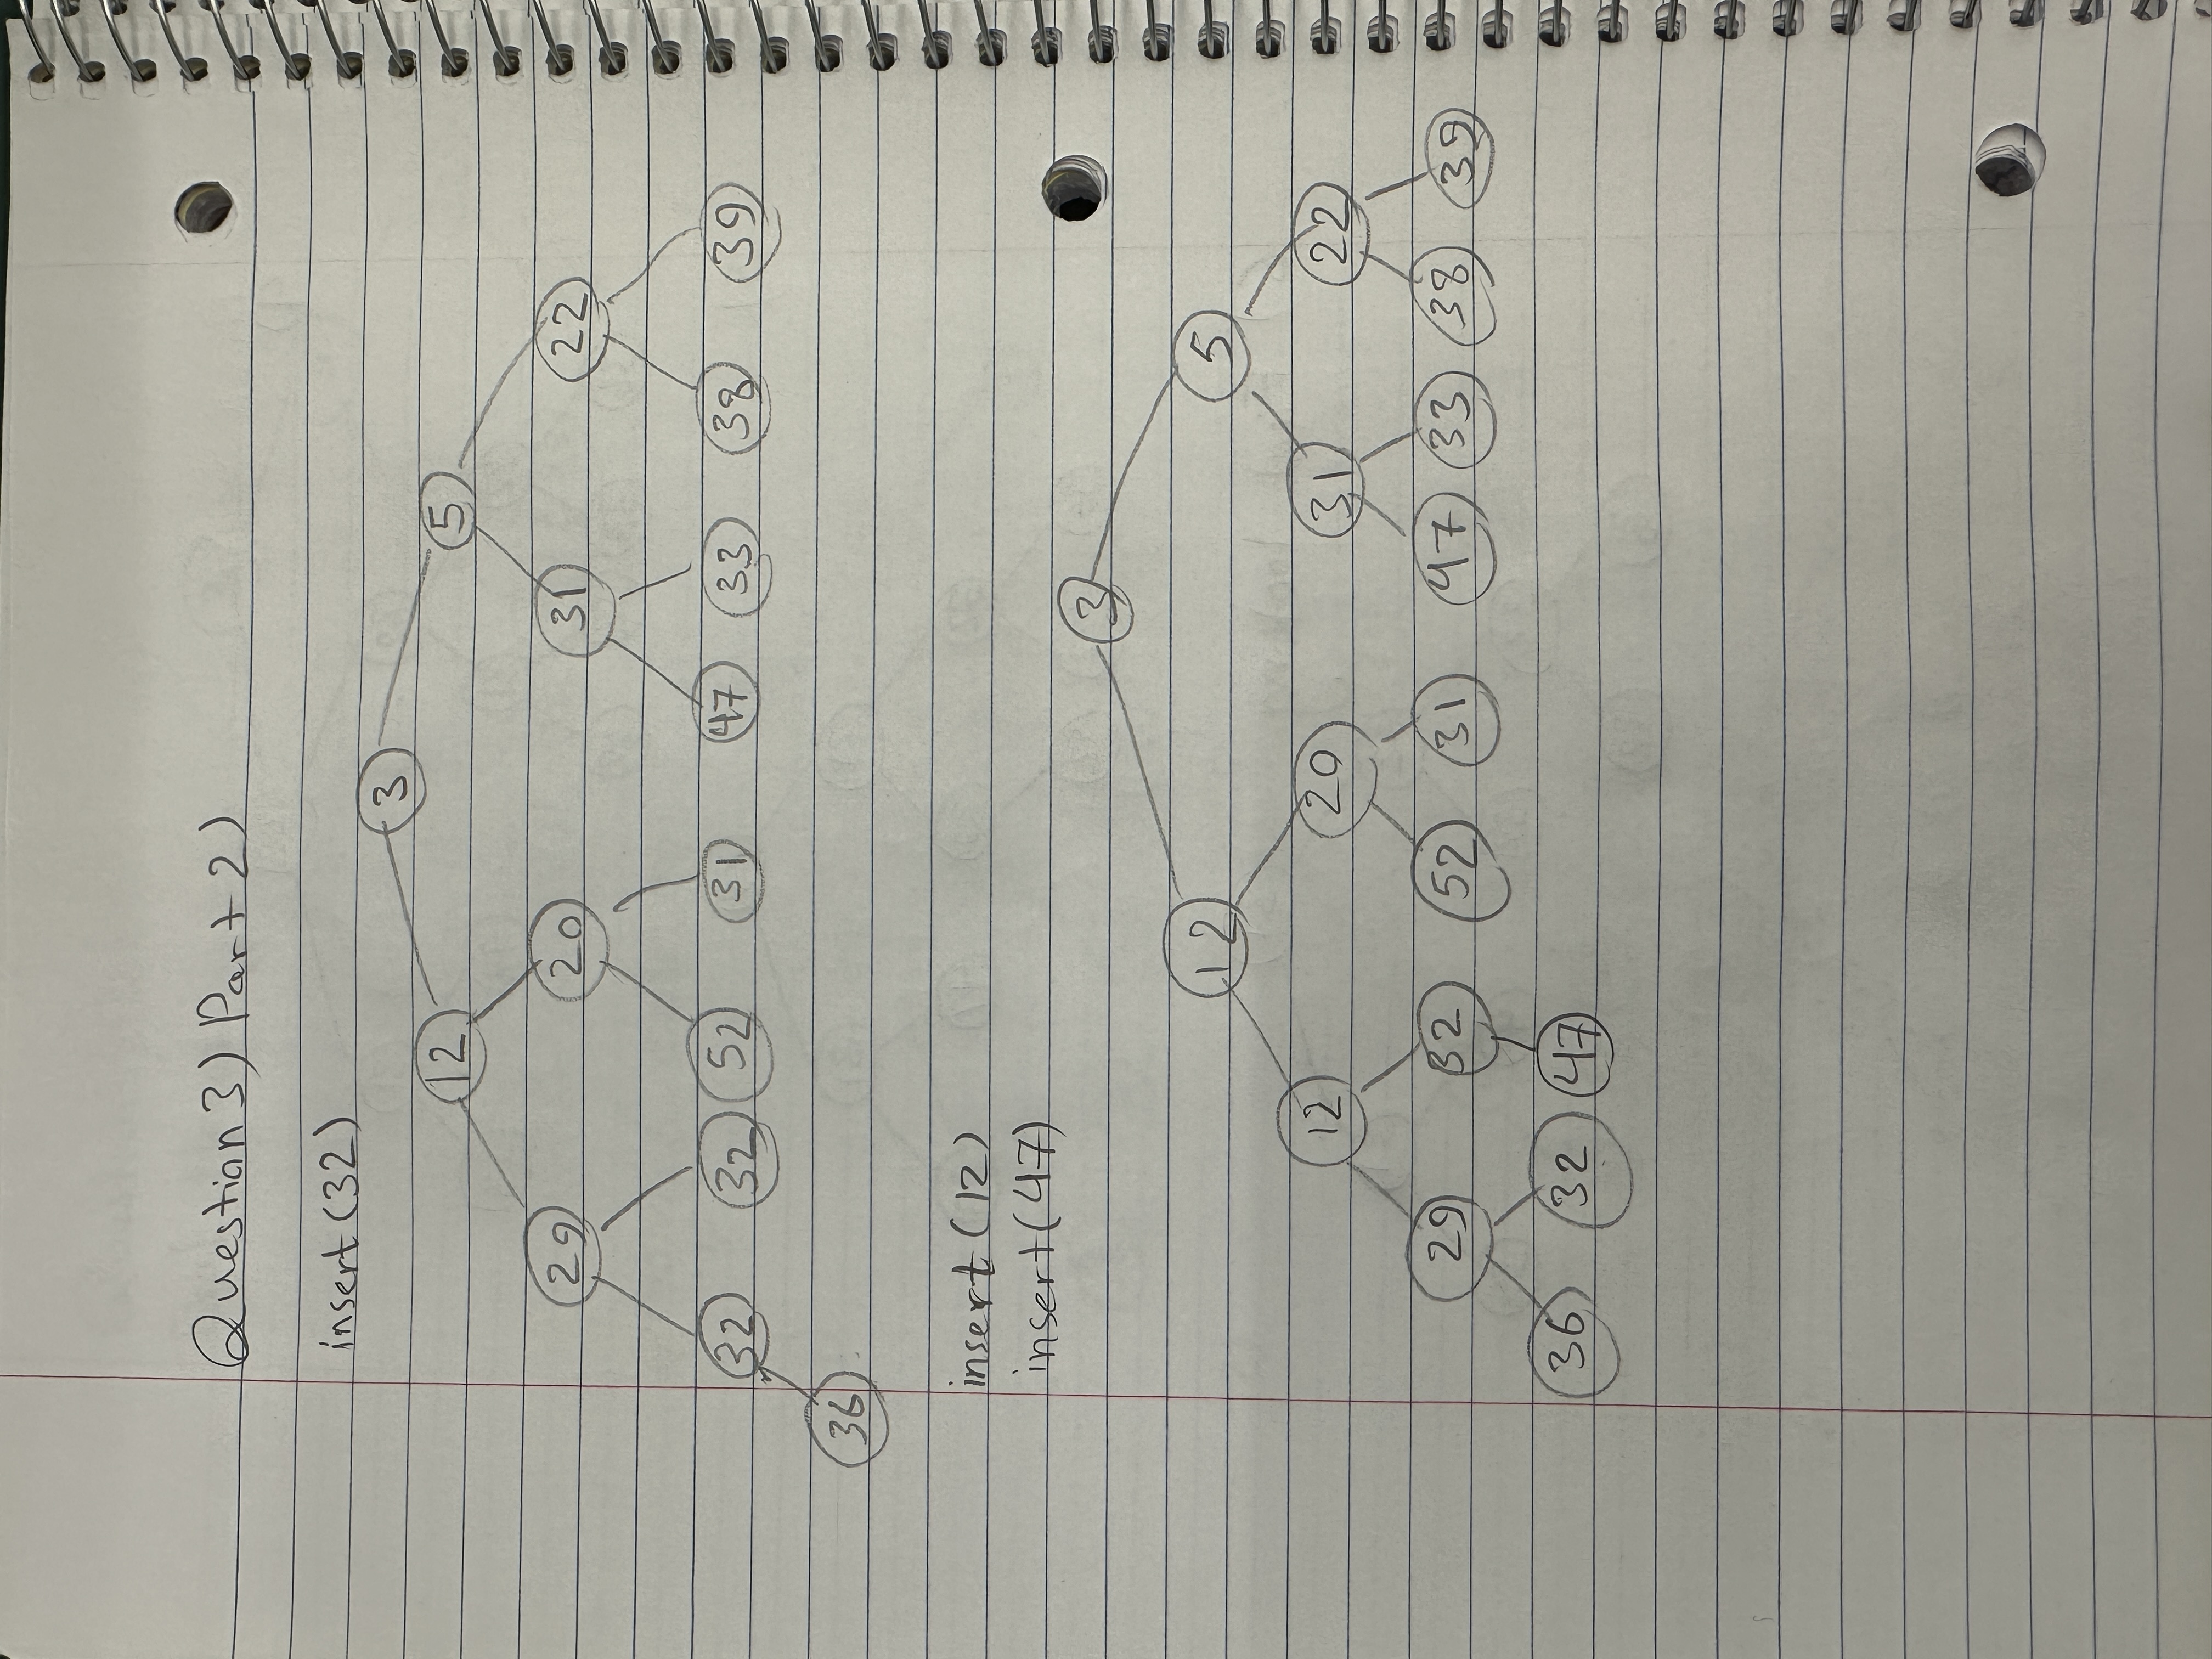 Question 3) Part 2)
insert (32)
3
12 5
29 20 31 22
32 32 52 31 47 33 38 39
36
insert (12)
insert (47)
3
12 5
12 20 31 22
29 32 52 31 47 33 38 39
36 32 47